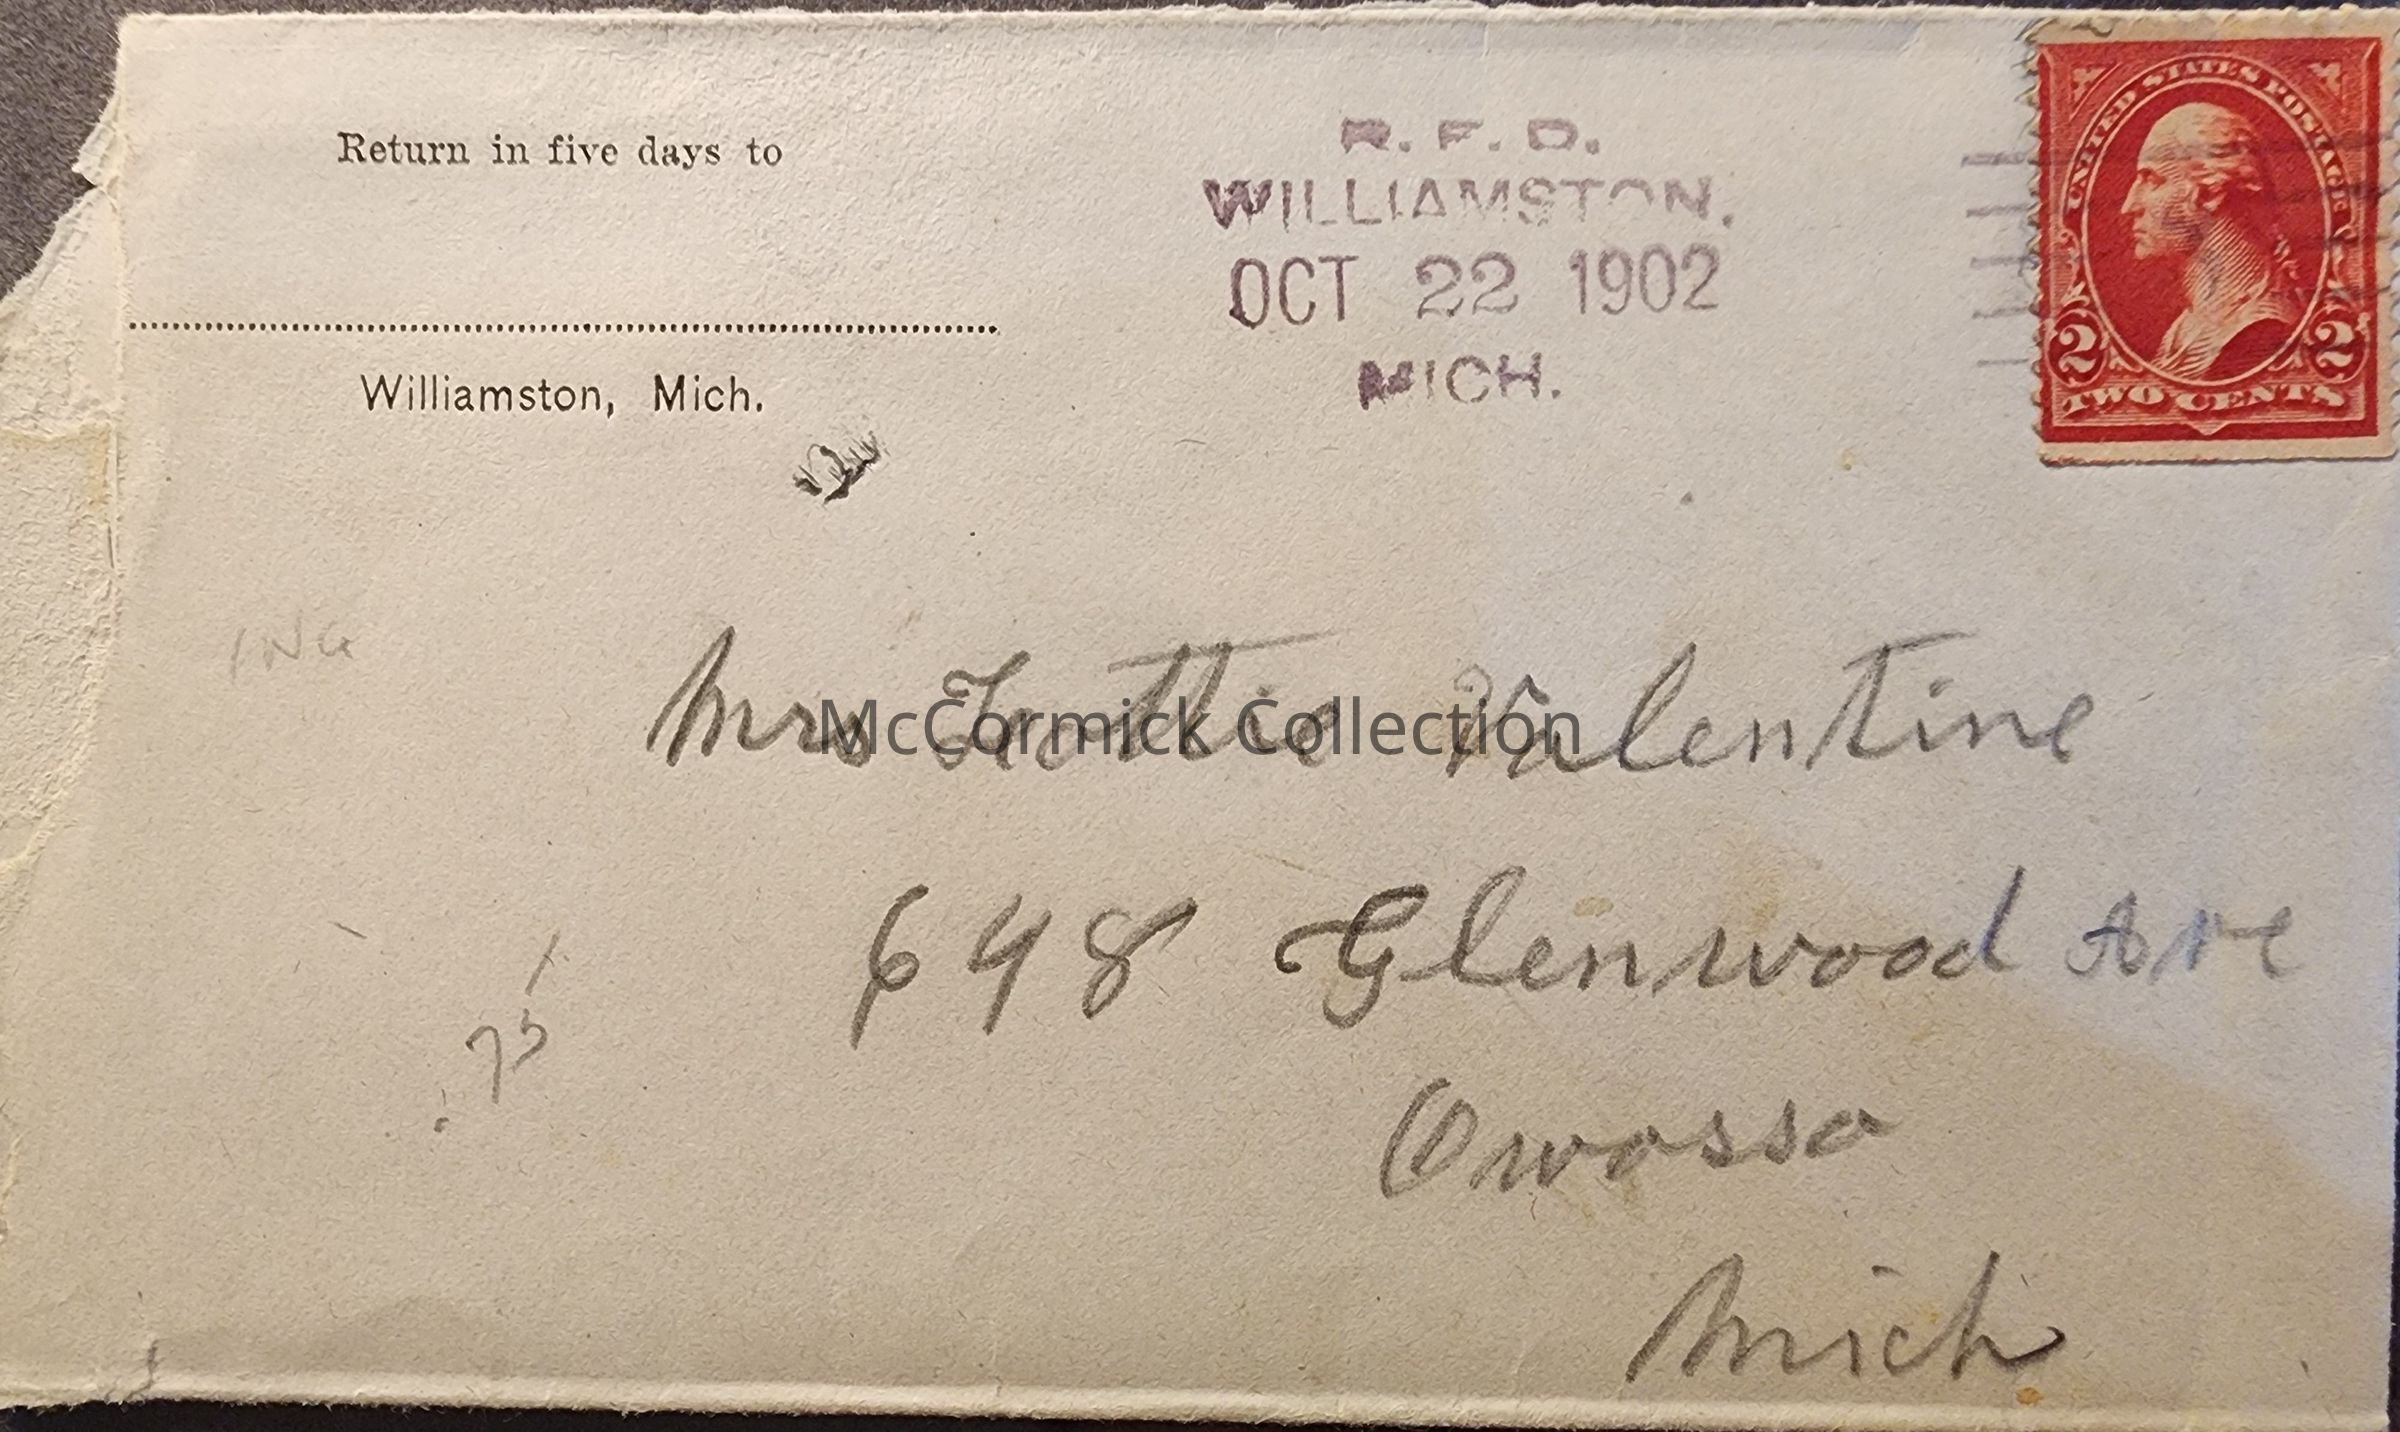 Return in five days to
Williamston, Mich.
R. F. D.
WILLIAMSTON.
OCT 22 1902
MICH.
UNITED STATES POSTAGE
2 2
TWO CENTS
ING
Mrs Lottie Valentine
McCormick Collection
648 Glenwood Ave
75
Owosso
Mich